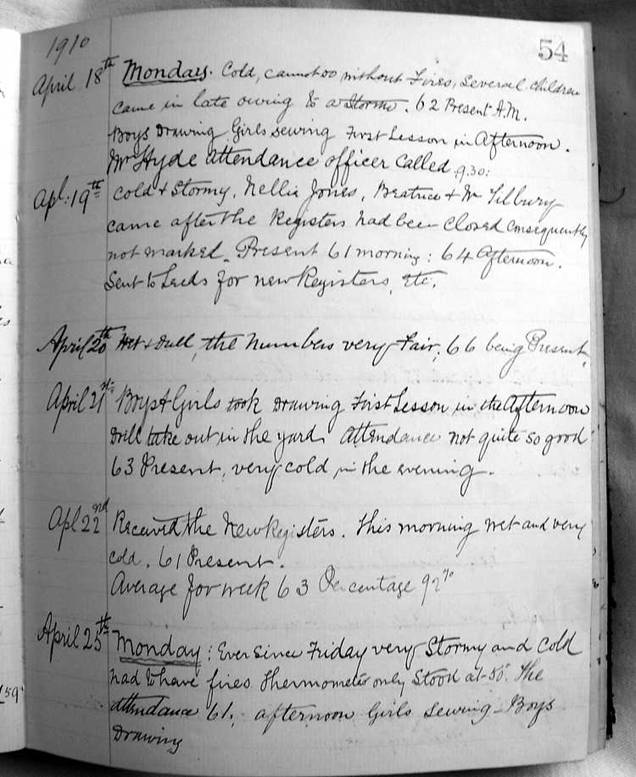 1910
54
April 18th Monday. Cold, cannot do without Fires, Several children
came in late owing to a Storm. 62 Present A.M.
Boys Drawing Girls Sewing First Lesson in Afternoon.
Mr Hyde Attendance officer Called 9.30:
Apl: 19th Cold & Stormy. Nellie Jones, Beatrice & Wm Tilbury
came after the Registers had been closed consequently
not marked. Present 61 morning: 64 Afternoon.
Sent to Leeds for new Registers, Etc.
April 20th Wet & Dull, the Numbers very Fair, 66 being Present.
April 21st Boys & Girls took Drawing First Lesson in the Afternoon
Drill take out in the yard. Attendance not quite so good
63 Present, very cold in the evening.
Apl 22nd Received the New Registers. This morning wet and very
cold. 61 Present.
Average for week 63 Percentage 92%
April 25th Monday: Ever since Friday very Stormy and cold
had to have fires Thermometer only Stood at 50°. The
attendance 61, afternoon Girls Sewing - Boys
Drawing
159